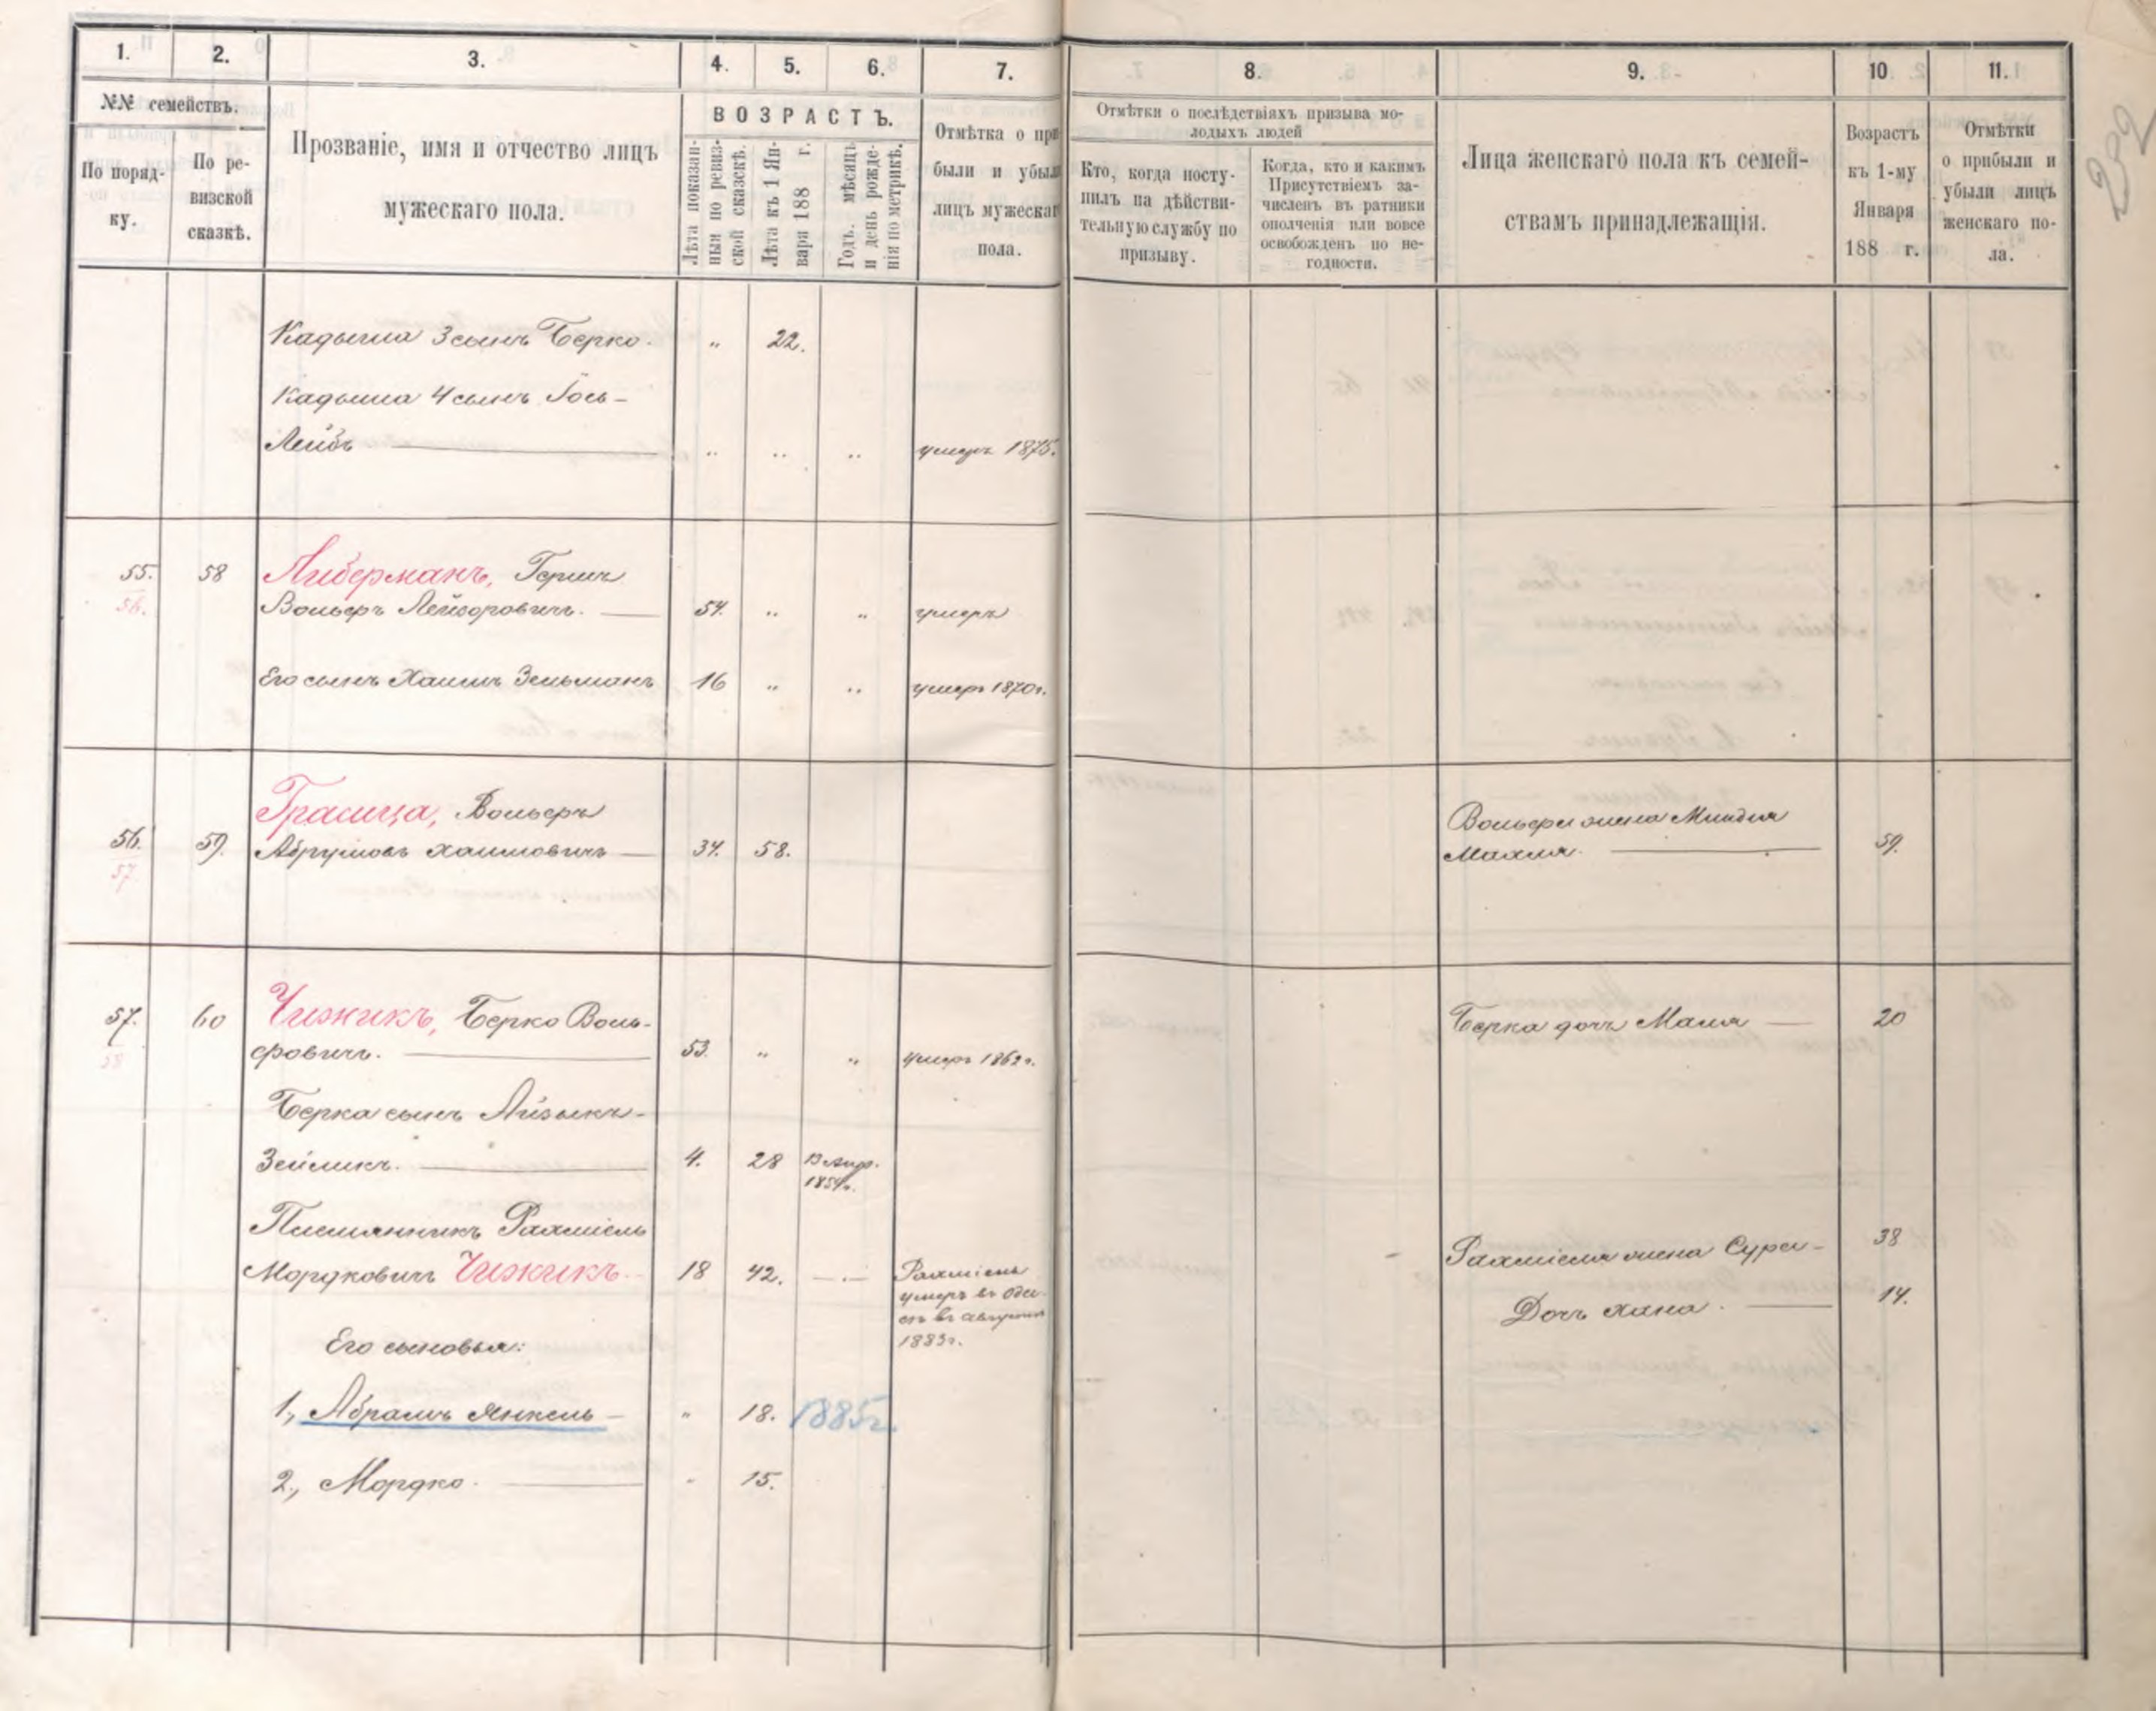 1. 2. 3. 4. 5. 6. 7. 8. 9. 10 11.
№№ семействъ.
По поряд-
ку.
По ре-
визской
сказкѣ.
Прозваніе, имя и отчество лицъ
мужескаго пола.
ВОЗРАСТЪ.
Лѣта показан-
ныя по ревиз-
ской сказкѣ.
Лѣта къ 1 Ян-
варя 188 г.
Годъ, мѣсяцъ
и день рожде-
нія по метрикѣ.
Отмѣтка о при
были и убыли
лицъ мужескаг
пола.
Отмѣтки о послѣдствіяхъ призыва мо-
лодыхъ людей
Кто, когда посту-
пилъ на дѣйстви-
тельную службу по
призыву.
Когда, кто и какимъ
Присутствіемъ за-
численъ въ ратники
ополченія или вовсе
освобожденъ по не-
годности.
Лица женскаго пола къ семей-
ствамъ принадлежащія.
Возрастъ
къ 1-му
Января
188 г.
Отмѣтки
о прибыли и
убыли лицъ
женскаго по-
ла.
232
Кадыша 3 сынъ Берко. „ 22.
Кадыша 4 сынъ Іось-
Лейбъ „ „ „ умеръ 1875.
55. 58 Либерманъ, Гершъ
56. Вольфъ Лейзоровичъ. 54. „ „ умеръ
Его сынъ Хаимъ Зельманъ 16 „ „ умеръ 1870г.
Грасица, Вольфъ Вольфа жена Миндля
56. 59. Абрумовъ Хаимовичъ 34. 58. Махля. 59.
57.
57. 60 Чижикъ, Берко Воль- Берка дочь Маля 20
58 фовичъ. 53. „ „ умеръ 1862г.
Берка сынъ Айзыкъ-
Зейликъ. 4. 28 13 Апр.
1854г.
Племянникъ Рахміель 38
Мордковичъ Чижикъ. 18 42. Рахміель Рахміеля жена Сура-
умеръ въ Оде-
ссѣ въ августѣ Дочь Хана. 14.
1883г.
Его сыновья:
1., Абрамъ Янкель „ 18. 1885г.
2., Мордко. „ 15.